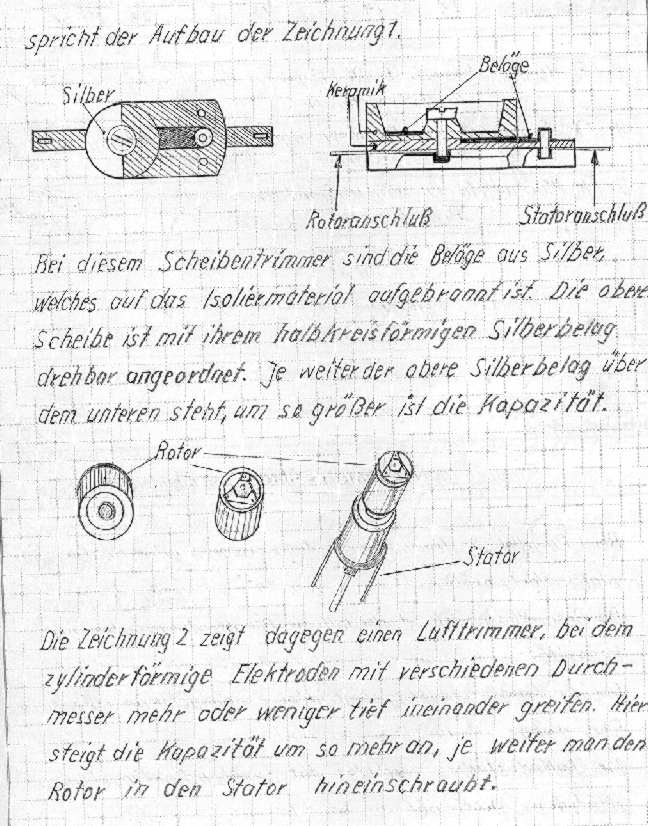 spricht der Aufbau der Zeichnung 1.
Beläge
Silber
Keramik
Rotoranschluß
Statoranschluß
Bei diesem Scheibentrimmer sind die Beläge aus Silber,
welches auf das Isoliermaterial aufgebrannt ist. Die obere
Scheibe ist mit ihrem halbkreisförmigen Silberbelag
drehbar angeordnet. Je weiter der obere Silberbelag über
dem unteren steht, um so größer ist die Kapazität.
Rotor
Stator
Die Zeichnung 2 zeigt dagegen einen Lufttrimmer, bei dem
zylinderförmige Elektroden mit verschiedenen Durch-
messer mehr oder weniger tief ineinander greifen. Hier
steigt die Kapazität um so mehr an, je weiter man den
Rotor in den Stator hineinschraubt.